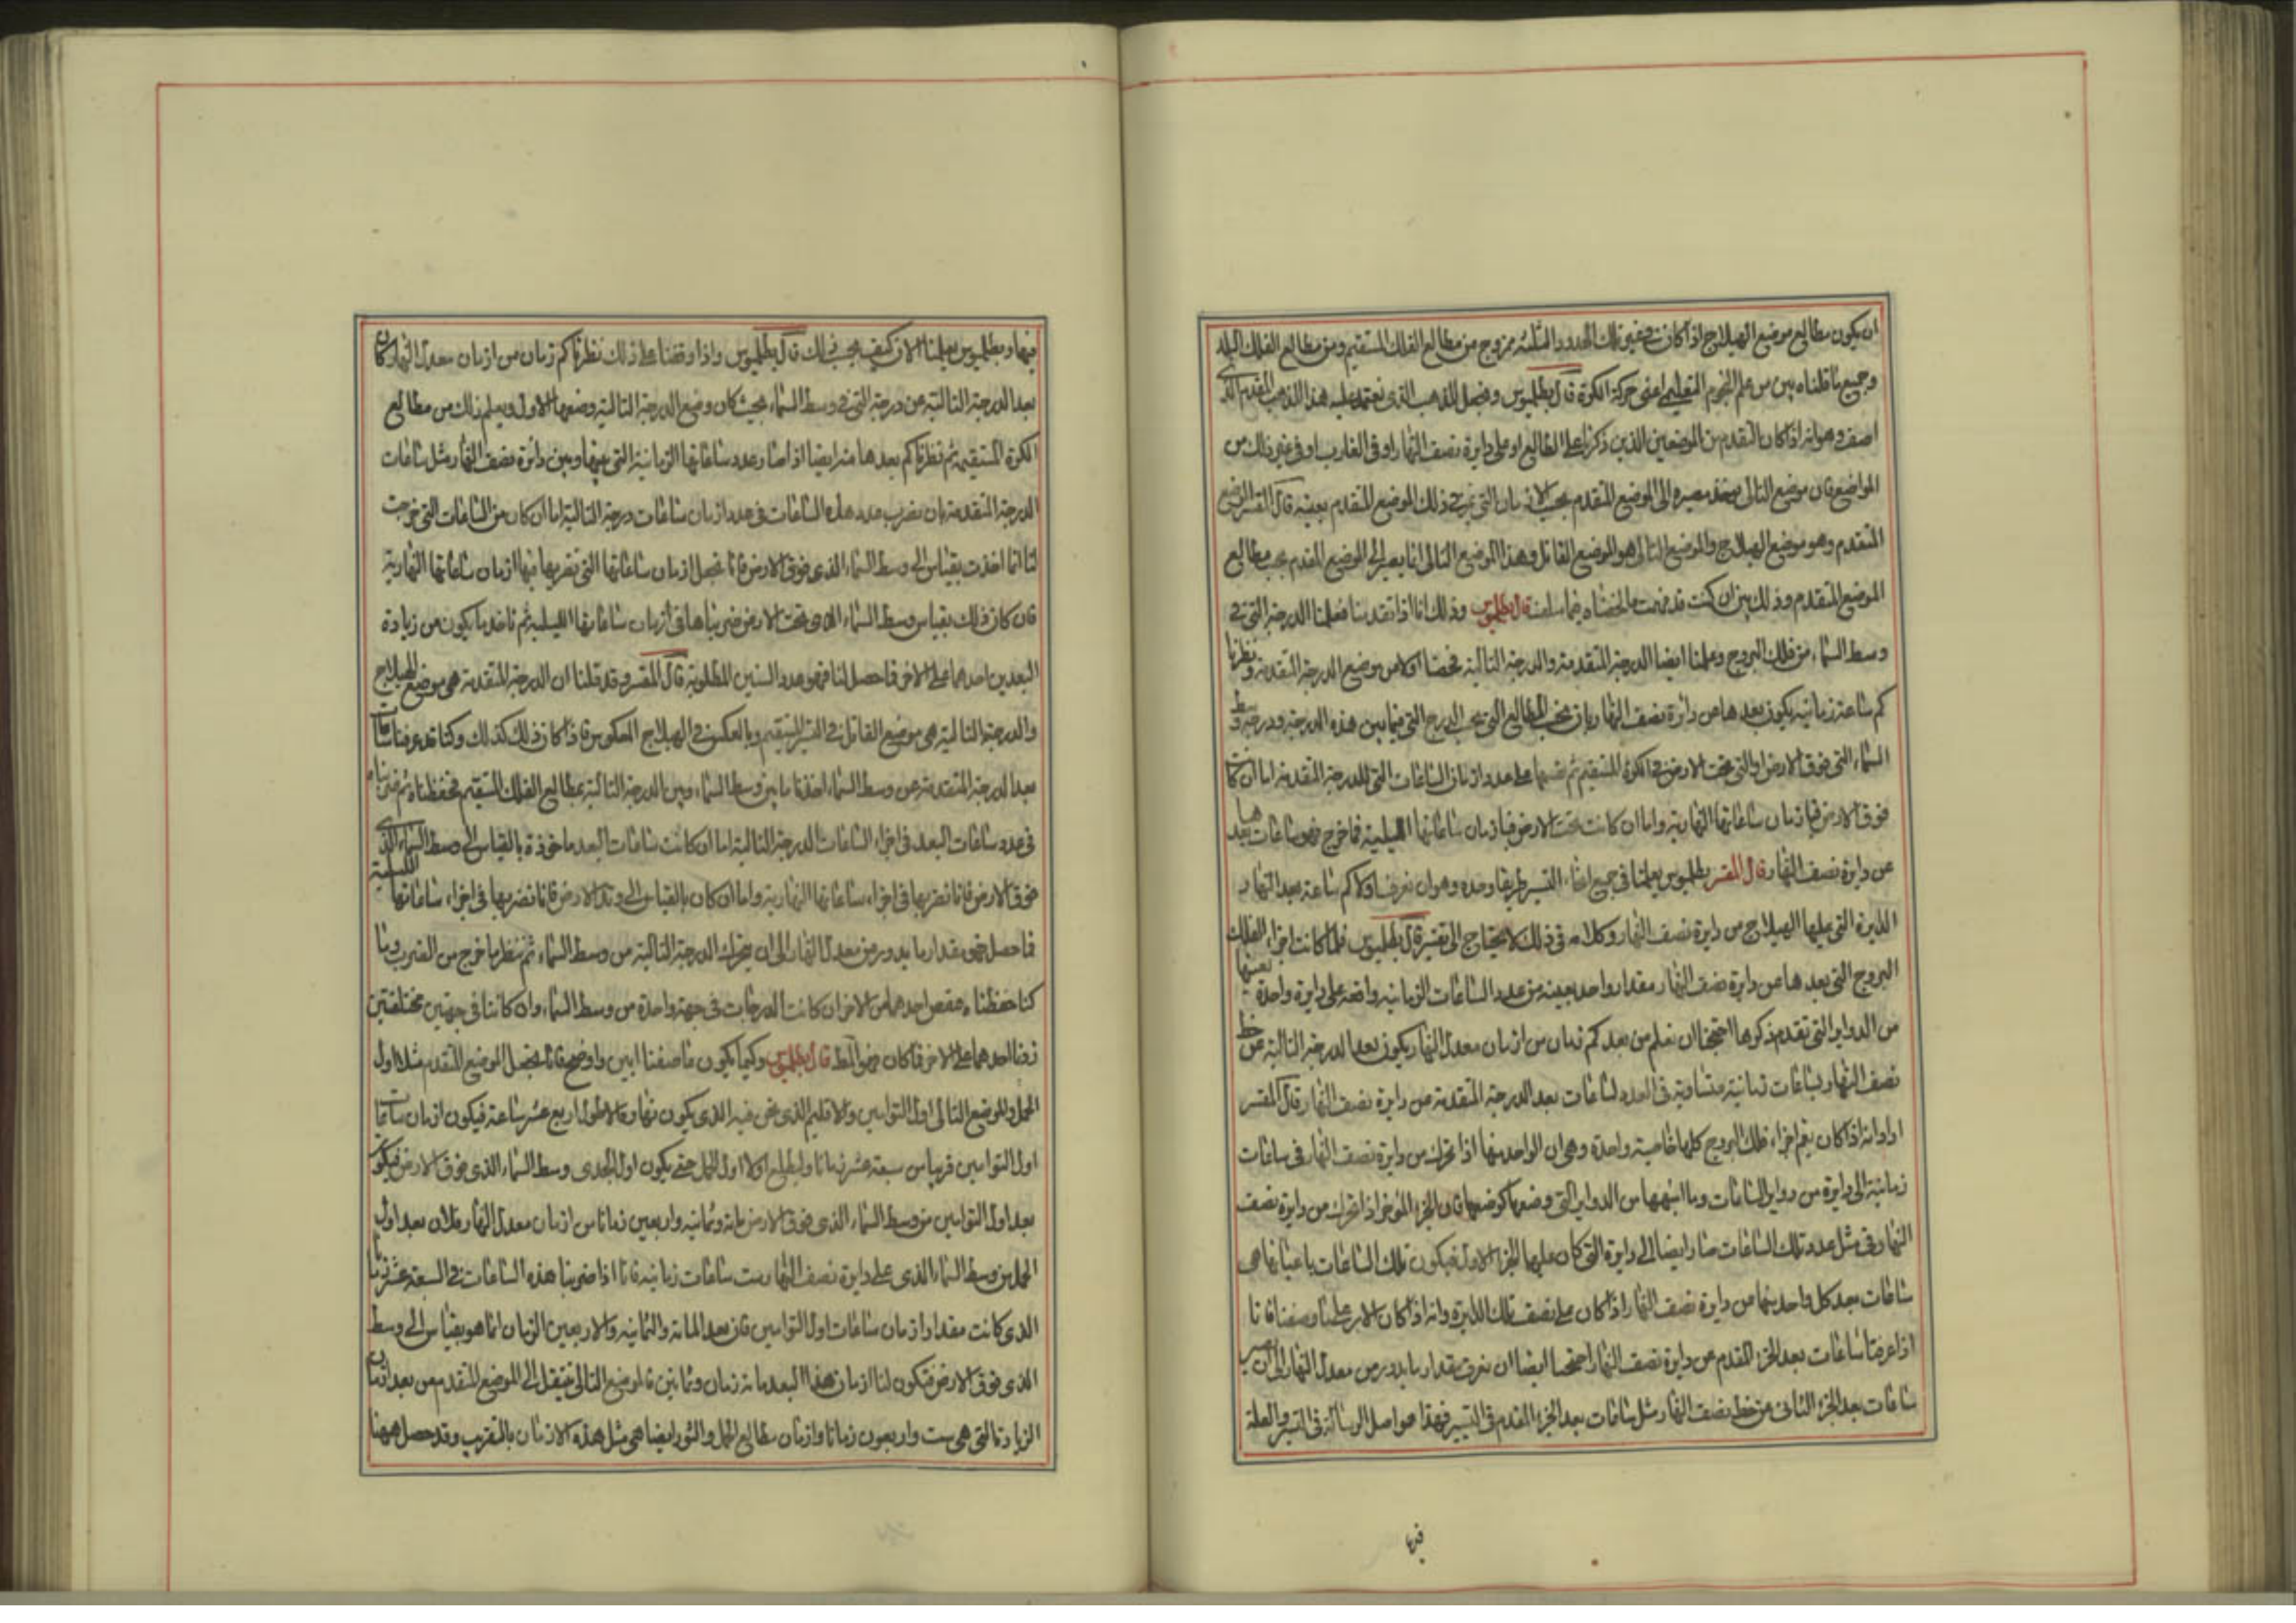 ان يكون مطالع موضع الهيلاج اذا كانت في غير تلك الحدود الثلثه ممزوج من مطالع الفلك المستقيم ومن مطالع الفلك البلد
وجميع ما قلناه بين من علم النجوم التعليمى اعنى حركة الكوة قال بطلميوس وفضل المذهب الذى نعتمد عليه هذا المذهب المقدم الذى
اصف وهو انه اذا كان المتقدم من الموضعين الذين ذكرنا على الطالع او على دايرة نصف النهار او فى الغارب او فى غير ذلك من
المواضع فان موضع التالى مصيره الى الموضع المتقدم بحسب الازمان التى ذلك الموضع المتقدم بعينه قال المفسر الموضع
المتقدم وهو موضع الهيلاج والموضع التالى هو الموضع القاتل وهذا الموضع التالى انما يصير الى الموضع المقدم بحسب مطالع
الموضع المتقدم وذلك بين ان كنت قد فهمت ما لخصناه فيما سلف قال بطلميوس وذلك انا اذا تقدمنا فعلمنا الدرجة التى فى
وسط السماء من فلك البروج وعلمنا ايضا الدرجة المتقدمة والدرجة التالية فحصنا اولا من موضع الدرجة المتقدمة ونظرنا
كم ساعة زمانية يكون بعدها من دائرة نصف النهار بان نحسب المطالع التى تجب للدرج التى فيما بين هذه الدرجة ودرجة وسط
السماء التى فوق الارض او التى تحت الارض فى الكرة المستقيم ثم نقسمها على عدد ازمان الساعات التى للدرجة المتقدمة اما ان كانت
فوق الارض فبازمان ساعاتها النهارية واما ان كانت تحت الارض فبازمان ساعاتها الليلية فما خرج فهو ساعات بعدها
عن دايرة نصف النهار قال المفسر بطلميوس يعلمنا فى جميع انحاء التسيير طريقا وحده وهو ان نعرف اولا كم ساعة بعد النهار
الدايرة التى عليها الهيلاج من دايرة نصف النهار وكلامه فى ذلك لا يحتاج الى تفسير قال بطلميوس فلما كانت اجزاء الفلك
البروج التى بعدها من دايرة نصف النهار مقدار واحد بعينه من عدد الساعات الزمانيه واقعه على دايرة واحدة بعينها
من الدواير التى تقدم ذكرها احتجنا ان نعلم من بعد كم زمان من ازمان معدل النهار يكون بعد الدرجة التالية عن خط
نصف النهار بساعات زمانية متساوية فى العدد لساعات بعد الدرجة المتقدمة من دايرة نصف النهار قال المفسر
اراد انه اذا كان يعم اجزاء فلك البروج كلها خاصية واحدة وهى ان الواحد منها اذا تحرك من دايرة نصف النهار فى ساعات
زمانية الى دايرة من دواير الساعات وما اشبهها من الدواير التى وضعها كوضعها فان الجزء المؤخر اذا تحرك من دايرة نصف
النهار فى مثل عدد تلك الساعات صار ايضا الى دايرة التى كان عليها الجزء الاول فيكون تلك الساعات باعيانها هى
ساعات بعد كل واحد منهما من دايرة نصف النهار اذا كان على نصف تلك الدايرة وانه اذا كان الامر على ما وصفنا فانا
اذا عرضنا ساعات بعد الجزء المقدم عن دايرة نصف النهار احتجنا ايضا ان نعرف مقدار ما يدور من معدل النهار الى ان يصير
ساعات بعد الجزء الثانى من خط نصف النهار مثل ساعات بعد الجزء المقدم فى التسيير فهذا هو اصل الرسالة فى التسيير والعلة
فيها
فيها وبطلميوس يعلمنا الان كيف يجب ذلك قال بطلميوس واذا وقفنا على ذلك نظرنا كم زمان من ازمان معدل النهار كان
بعد الدرجة التالية عن درجة التى فى وسط السماء بحيث كان وضع الدرجة التالية وضعها الاول ويعلم ذلك من مطالع
الكرة المستقيمة ثم نظرنا كم بعدها منه ايضا اذا صار عدد ساعاتها الزمانية التى بينها وبين دائرة نصف النهار مثل ساعات
الدرجة المتقدمة بان نضرب عدد هذه الساعات فى عدد ازمان ساعات درجة التالية اما ان كان من الساعات التى خرجت
لنا انما اخذت بقياس الى وسط السماء الذى فوق الارض فانا نجعل ازمان ساعاتها التى نضربها فيها ازمان ساعاتها النهارية
فان كان ذلك بقياس وسط السماء الذى تحت الارض ضربناها فى ازمان ساعاتها الليلية ثم ناخذ ما يكون من زيادة
البعدين احدهما على الاخر فما حصل لنا فهو عدد السنين المطلوبة قال المفسر وقد قلنا ان الدرجة المتقدمة هى موضع الهيلاج
والدرجة التالية هى موضع القاتل فى التسيير المستقيم وبالعكس فى الهيلاج المعكوس فاذا كان ذلك كذلك وكنا قد عرفنا ساعات
بعد الدرجة المتقدمة عن وسط السماء اخذنا ما بين وسط السماء وبين الدرجة التالية بمطالع الفلك المستقيم فحفظناه ثم ضربناه
فى عدد ساعات البعد فى اجزاء الساعات الدرجة التالية اما ان كانت ساعات البعد ماخوذة بالقياس الى وسط السماء الذى
فوق الارض فانا نضربها فى اجزاء ساعاتها النهارية واما ان كان بالقياس الى وتد الارض فانا نضربها فى اجزاء ساعاتها الليلية
فما حصل فهو مقدار ما يدور من معدل النهار الى ان يتحرك الدرجة التالية من وسط السماء ثم ننظر ما خرج من الضرب وما
كنا حفظناه فننقص احدهما من الاخر ان كانت الدرجات فى جهة واحدة من وسط السماء وان كانتا فى جهتين مختلفتين
زدنا احدهما على الاخر فما كان فهو المط قال بطلميوس وكيما يكون ما صفنا ابين واوضح فانا نجعل الموضع المتقدم مثلا اول
الحمل والموضع التالى اول التوامين والاقليم الذى نحن فيه الذى يكون نهاره الاطول اربع عشر ساعة فيكون ازمان ساعات
اول التوامين قريبا من سبعة عشر زمانا وليطلع اولا اول الحمل حتى يكون اول الجدى وسط السماء الذى فوق الارض فيكون
بعد اول التوامين من وسط السماء الذى فوق الارض مائة وثمانيه واربعين زمانا من ازمان معدل النهار فلان بعد اول
الحمل من وسط السماء الذى على دايرة نصف النهار ست ساعات زمانيه فانا اذا ضربنا هذه الساعات فى السبعة عشر زمانا
الذى كانت مقدار ازمان ساعات اول التوامين فان بعد المائة والثمانيه والاربعين الزمان انما هو بقياس الى وسط
الذى فوق الارض فتكون لنا ازمان هذا البعد مائة زمان وثمانين فالموضع التالى ينتقل الى الموضع المتقدم من بعد ازمان
الزيادة التى هى ست واربعون زمانا وازمان مطالع الحمل والثور ايضا هى مثل هذه الازمان بالتقريب وقد حصل ههنا